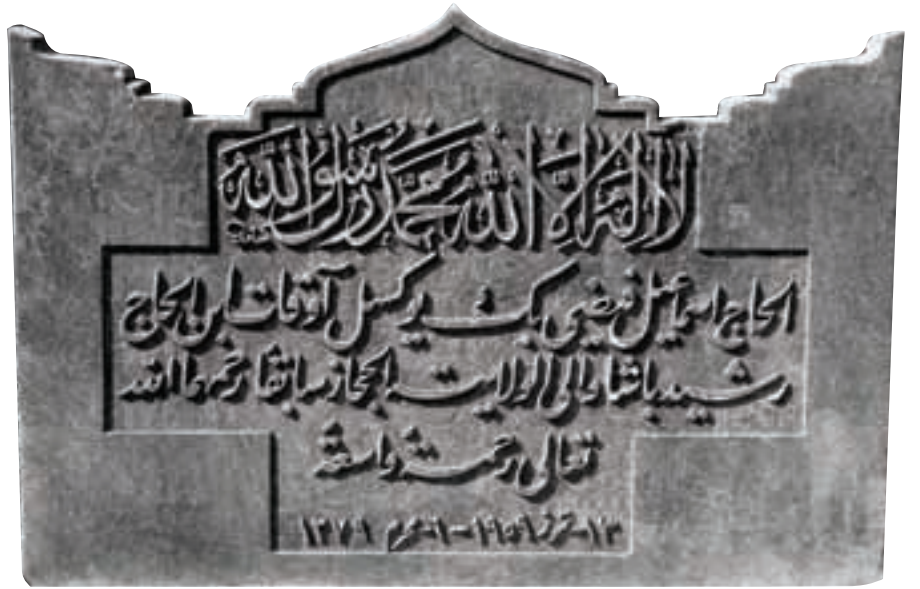 لا إله إلا الله محمد رسول الله
الحاج اسماعيل فيضي بك يوكسل آوقات ابن الحاج
رشيد باشا والي الولايت الحجاز سابقا رحمهما الله
تعالى رحمة واسعة
١٣-تموز ١٩٥٩-٦-محرم ١٣٧٩